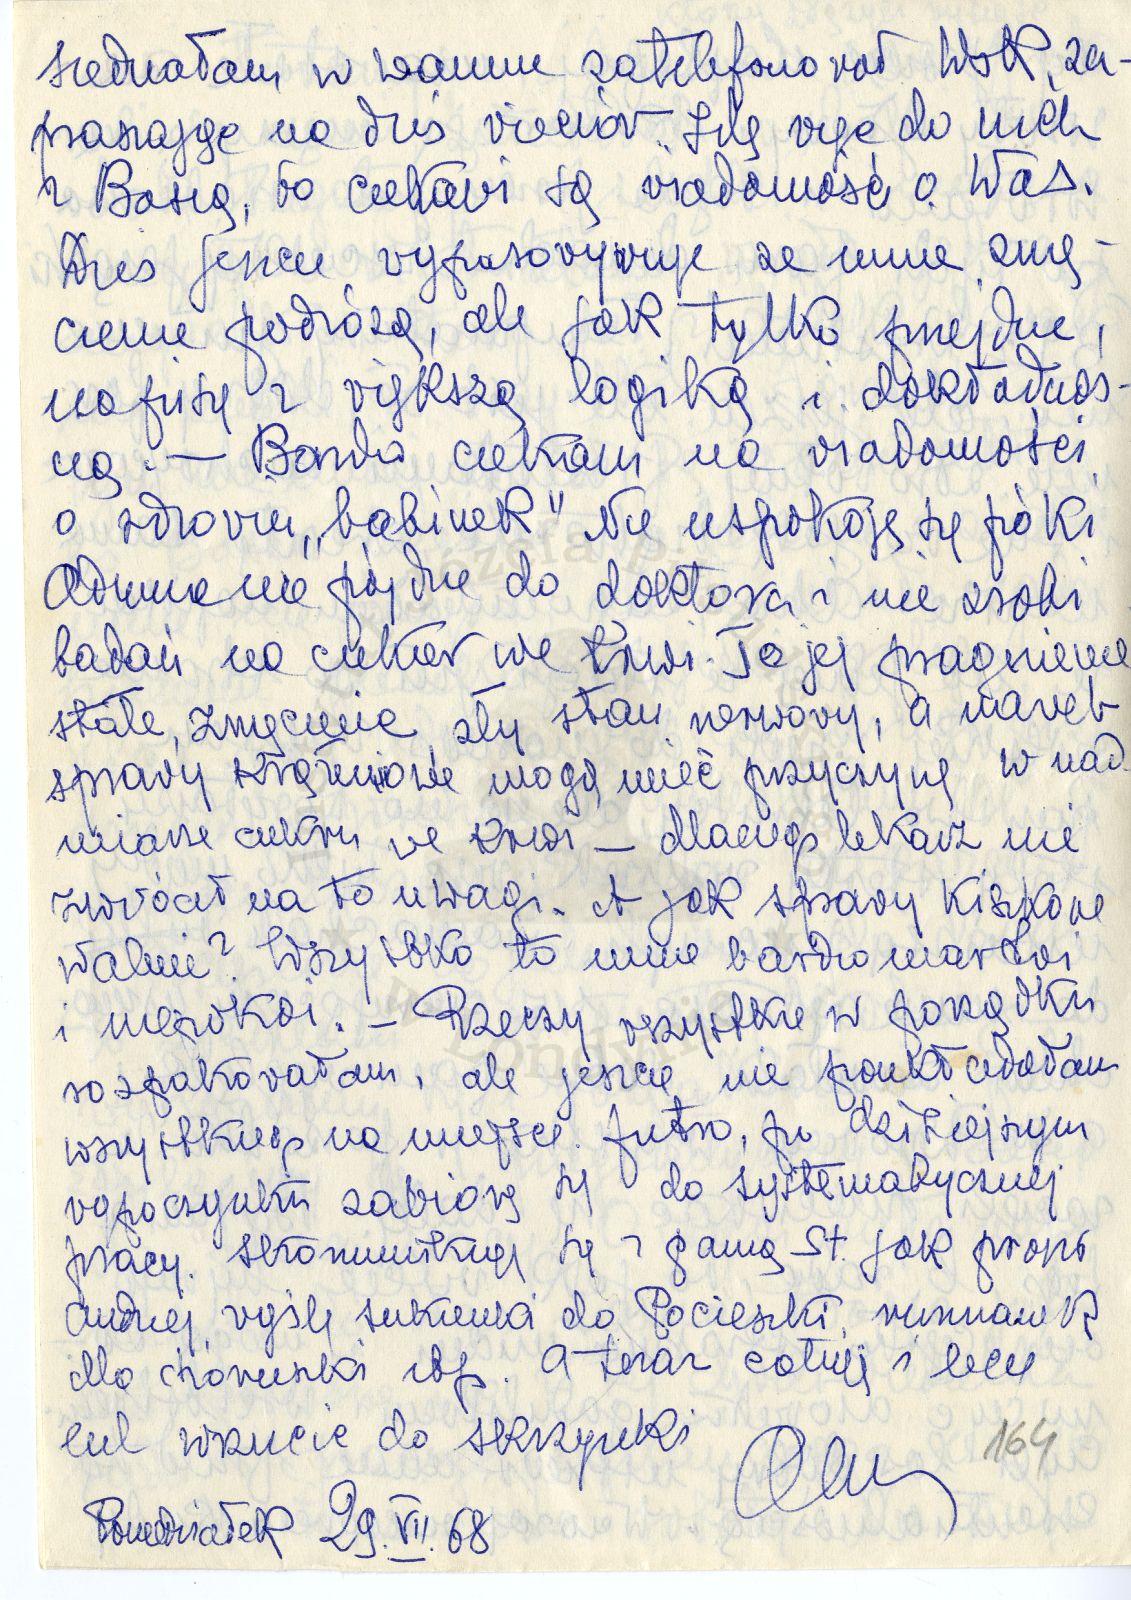 siedziałam w wannie zatelefonował WskR, za-
praszając na dziś wieczór. Idę więc do nich
z Basią, bo ciekawi są wiadomości o Was.
Dziś jeszcze wyparowywuje ze mnie zmę-
czenie podróżą, ale jak tylko przejdzie,
napiszę z większą logiką i dokładnoś-
cią. — Bardzo czekam na wiadomości
o zdrowiu „babinek" Nie uspokoję się póki
nie pójdzie do doktora i nie zrobi
badań na cukier we krwi. To jej pragnienie
stałe, zmęczenie, zły stan nerwowy, a nawet
sprawy krążeniowe mogą mieć przyczynę w nad-
miarze cukru we krwi — dlaczego lekarz nie
zwrócił na to uwagi. A jak sprawy kiszkowe
Walnie? Wszystko to mnie bardzo martwi
i niepokoi. — Rzeczy wszystkie w porządku
rozpakowałam, ale jeszcze nie poukładałam
wszystkiego na miejsce. Jutro, po dzisiejszym
wypoczynku zabiorę się do systematycznej
pracy. Skomunikuję się z panią St. jak prosił
Andrzej, wyślę sukienki do Pocieszki,
dla itp. A teraz całuję i lecę
list wrzucić do skrzynki
164
Poniedziałek 29.VII.68
Józefa Pi
Londynie